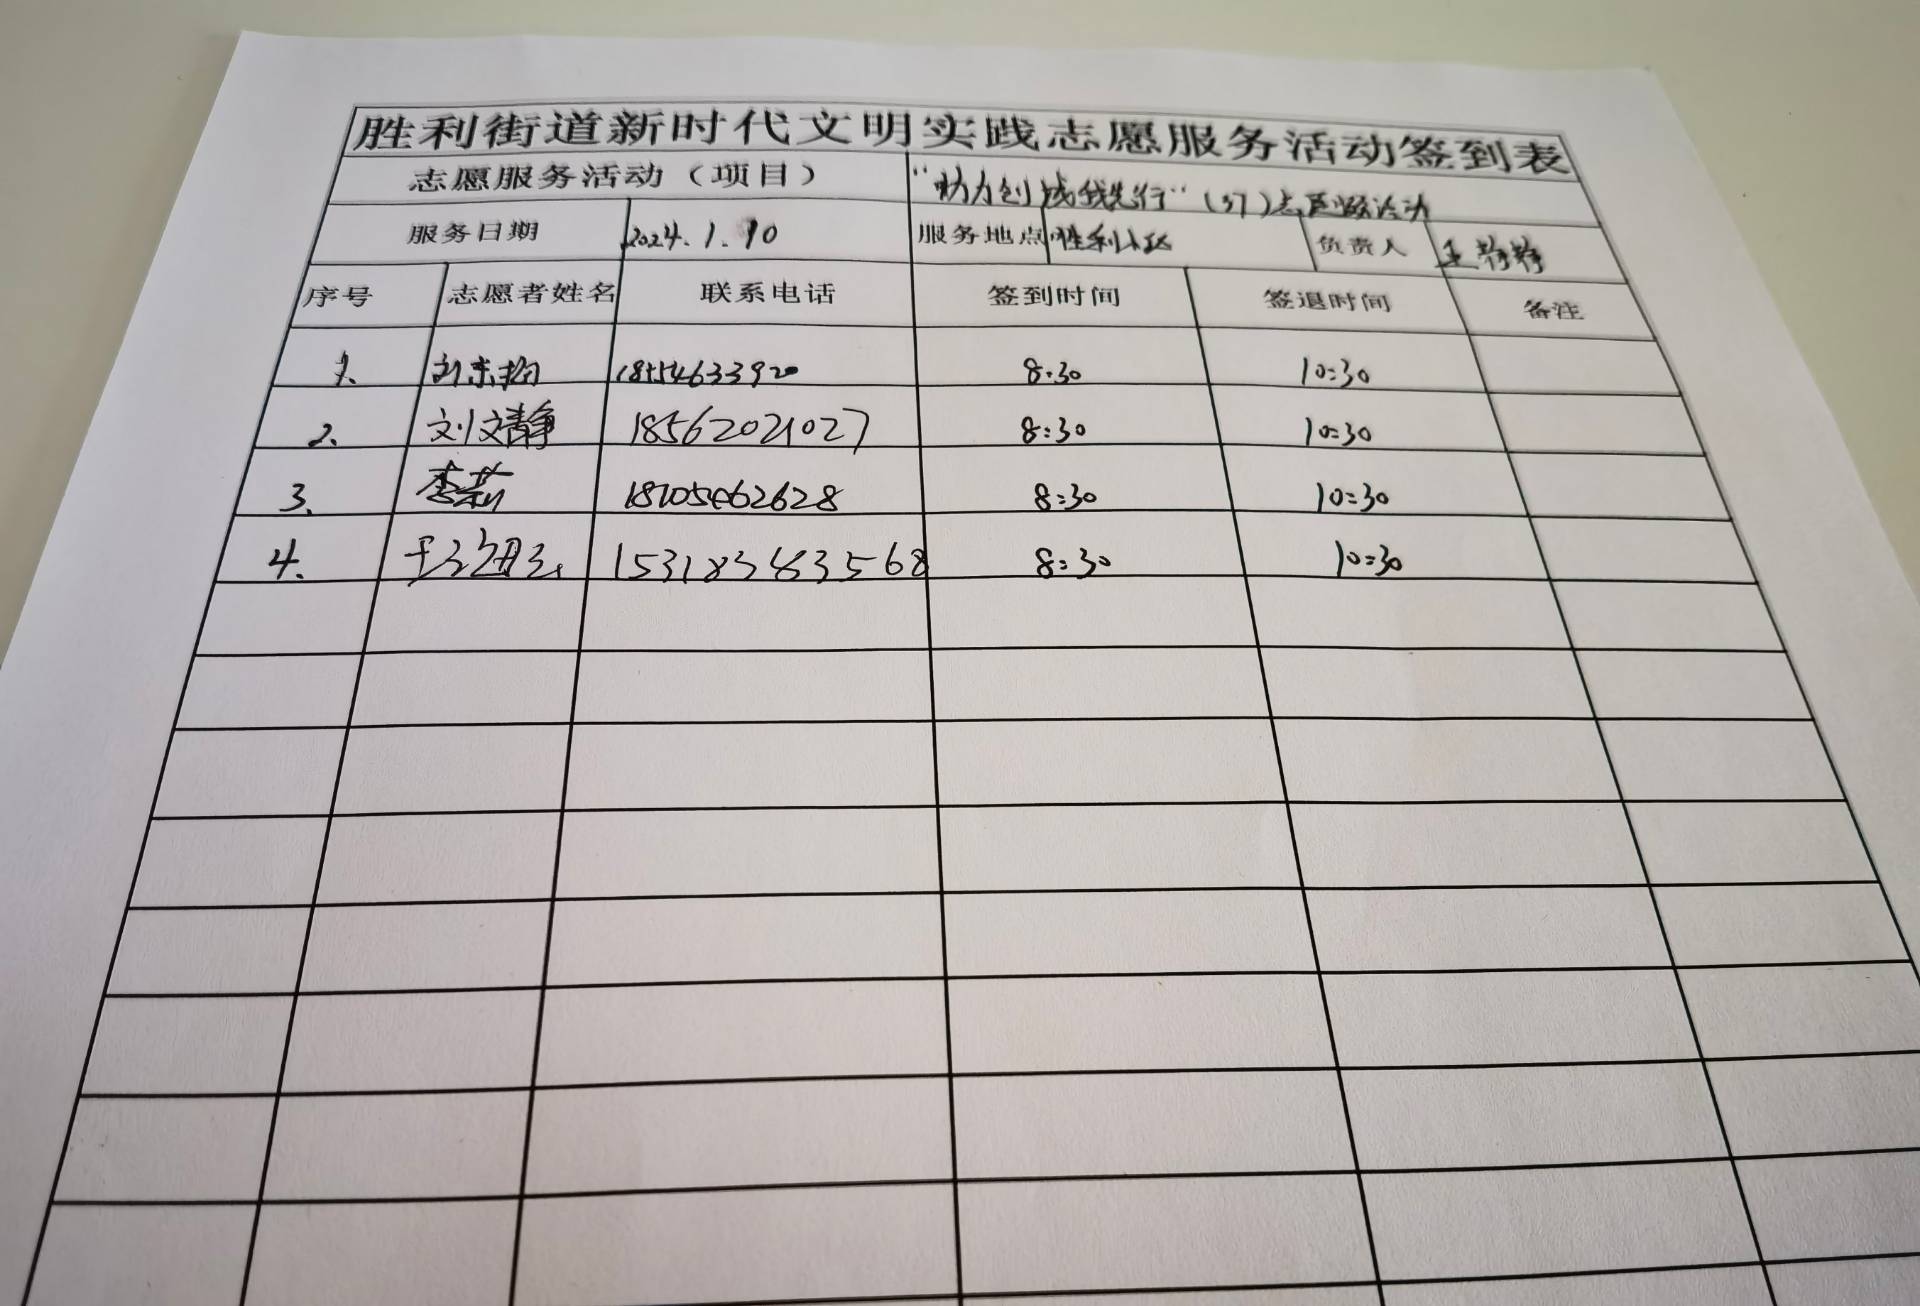 胜利街道新时代文明实践志愿服务活动签到表
志愿服务活动（项目） "助力创城我先行"（37）志愿服务活动
服务日期 2024.1.10 服务地点 胜利小区 负责人 王静静
序号 志愿者姓名 联系电话 签到时间 签退时间 备注
1. 刘东 18554633920 8:30 10:30
2. 刘文静 18562021027 8:30 10:30
3. 李莉 18705462628 8:30 10:30
4. 8:30 10:30